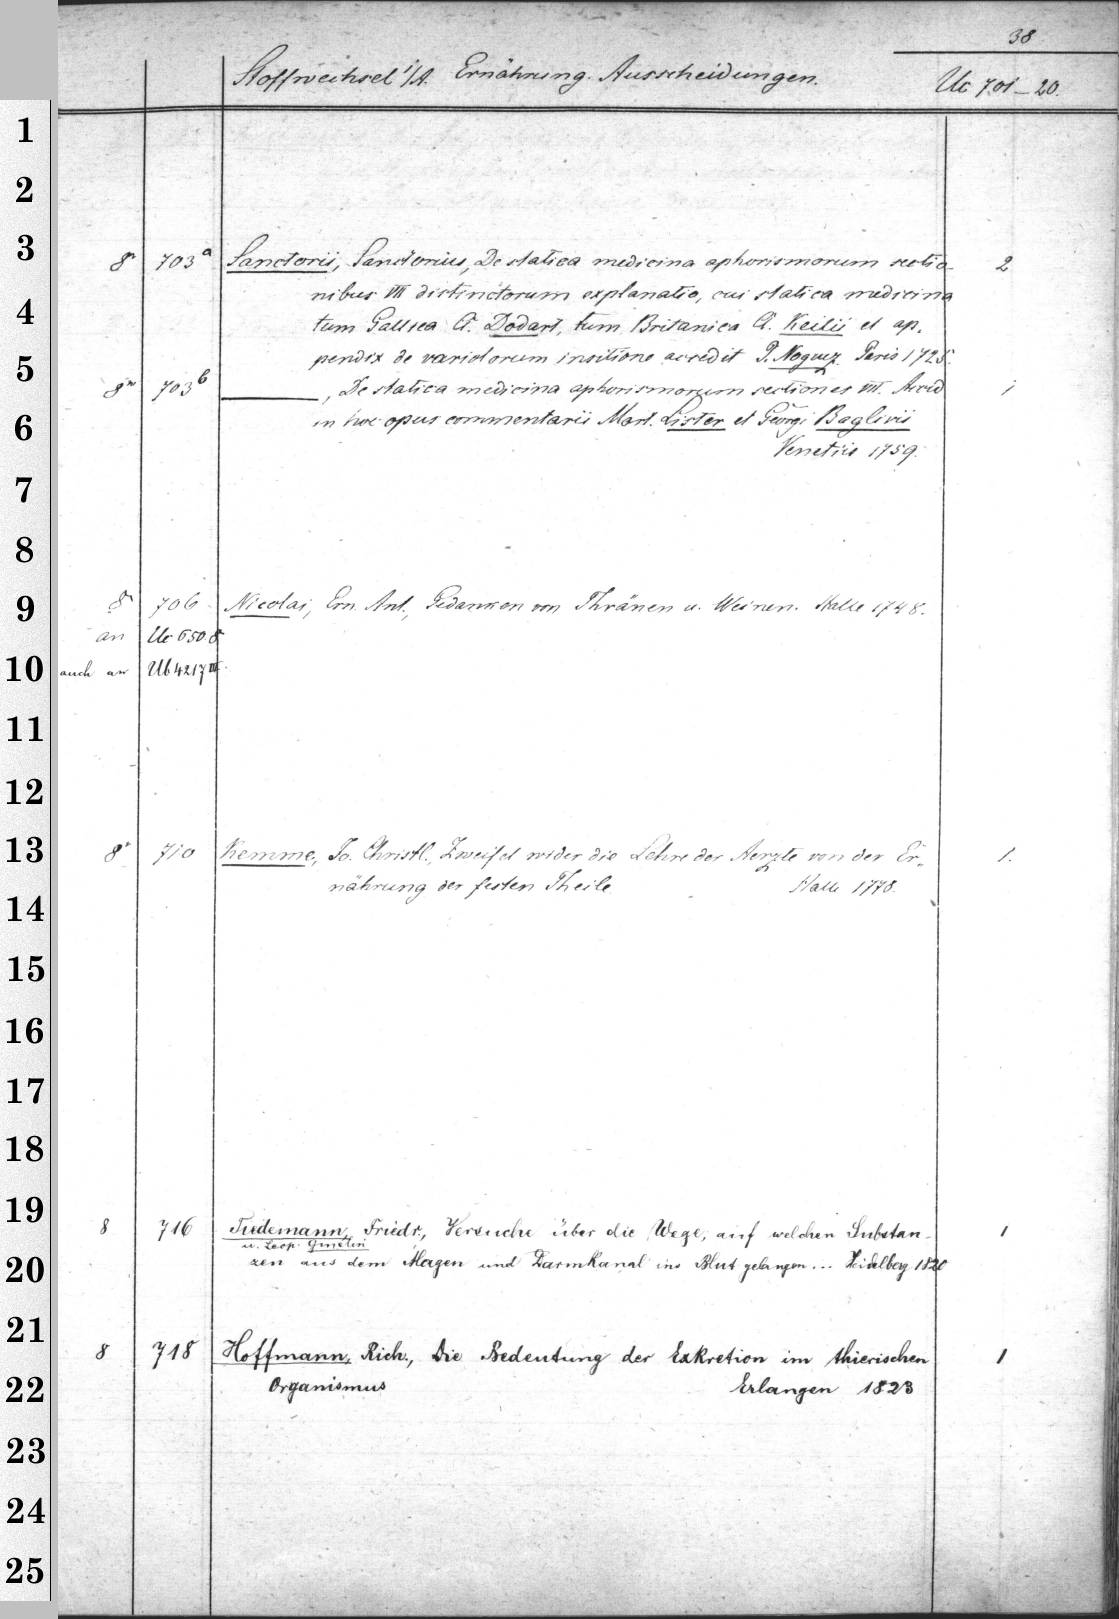 38
Stoffwechsel i/A. Ernährung. Ausscheidungen. Uc 701-20.
1
2
3
8° 703a Sanctorii, Sanctorius, De statica medicina aphorismorum sectio- 2
nibus VII distinctorum explanatio, cui statica medicina
4
tum Gallica Cl. Dodart, tum Britanica Cl. Keilii et ap-
pendix de variolorum insitione accedit P. Noguez. Paris 1725.
5
8° 703b ———, De statica medicina aphorismorum sectiones VII. Acced 1
in hoc opus commentarii Mart. Lister et Georgi Baglivii
6
Venetiis 1759.
7
8
9
8° 706 Nicolai, Ern. Ant., Gedanken von Thränen u. Weinen. Halle 1748.
an Uc 650.8
10
auch an Ub 4217 III.
11
12
13
8° 710 Kemme, Jo. Christl., Zweifel wider die Lehre der Aerzte von der Er- 1.
nährung der festen Theile Halle 1778.
14
15
16
17
18
19
8 716 Tiedemann, Friedr., Versuche über die Wege, auf welchen Substan- 1
u. Leop. Gmelin
20
zen aus dem Magen und Darmkanal ins Blut gelangen... Heidelberg 1820
21
8 718 Hoffmann, Rich., Die Bedeutung der Exkretion im thierischen 1
22
Organismus Erlangen 1823
23
24
25